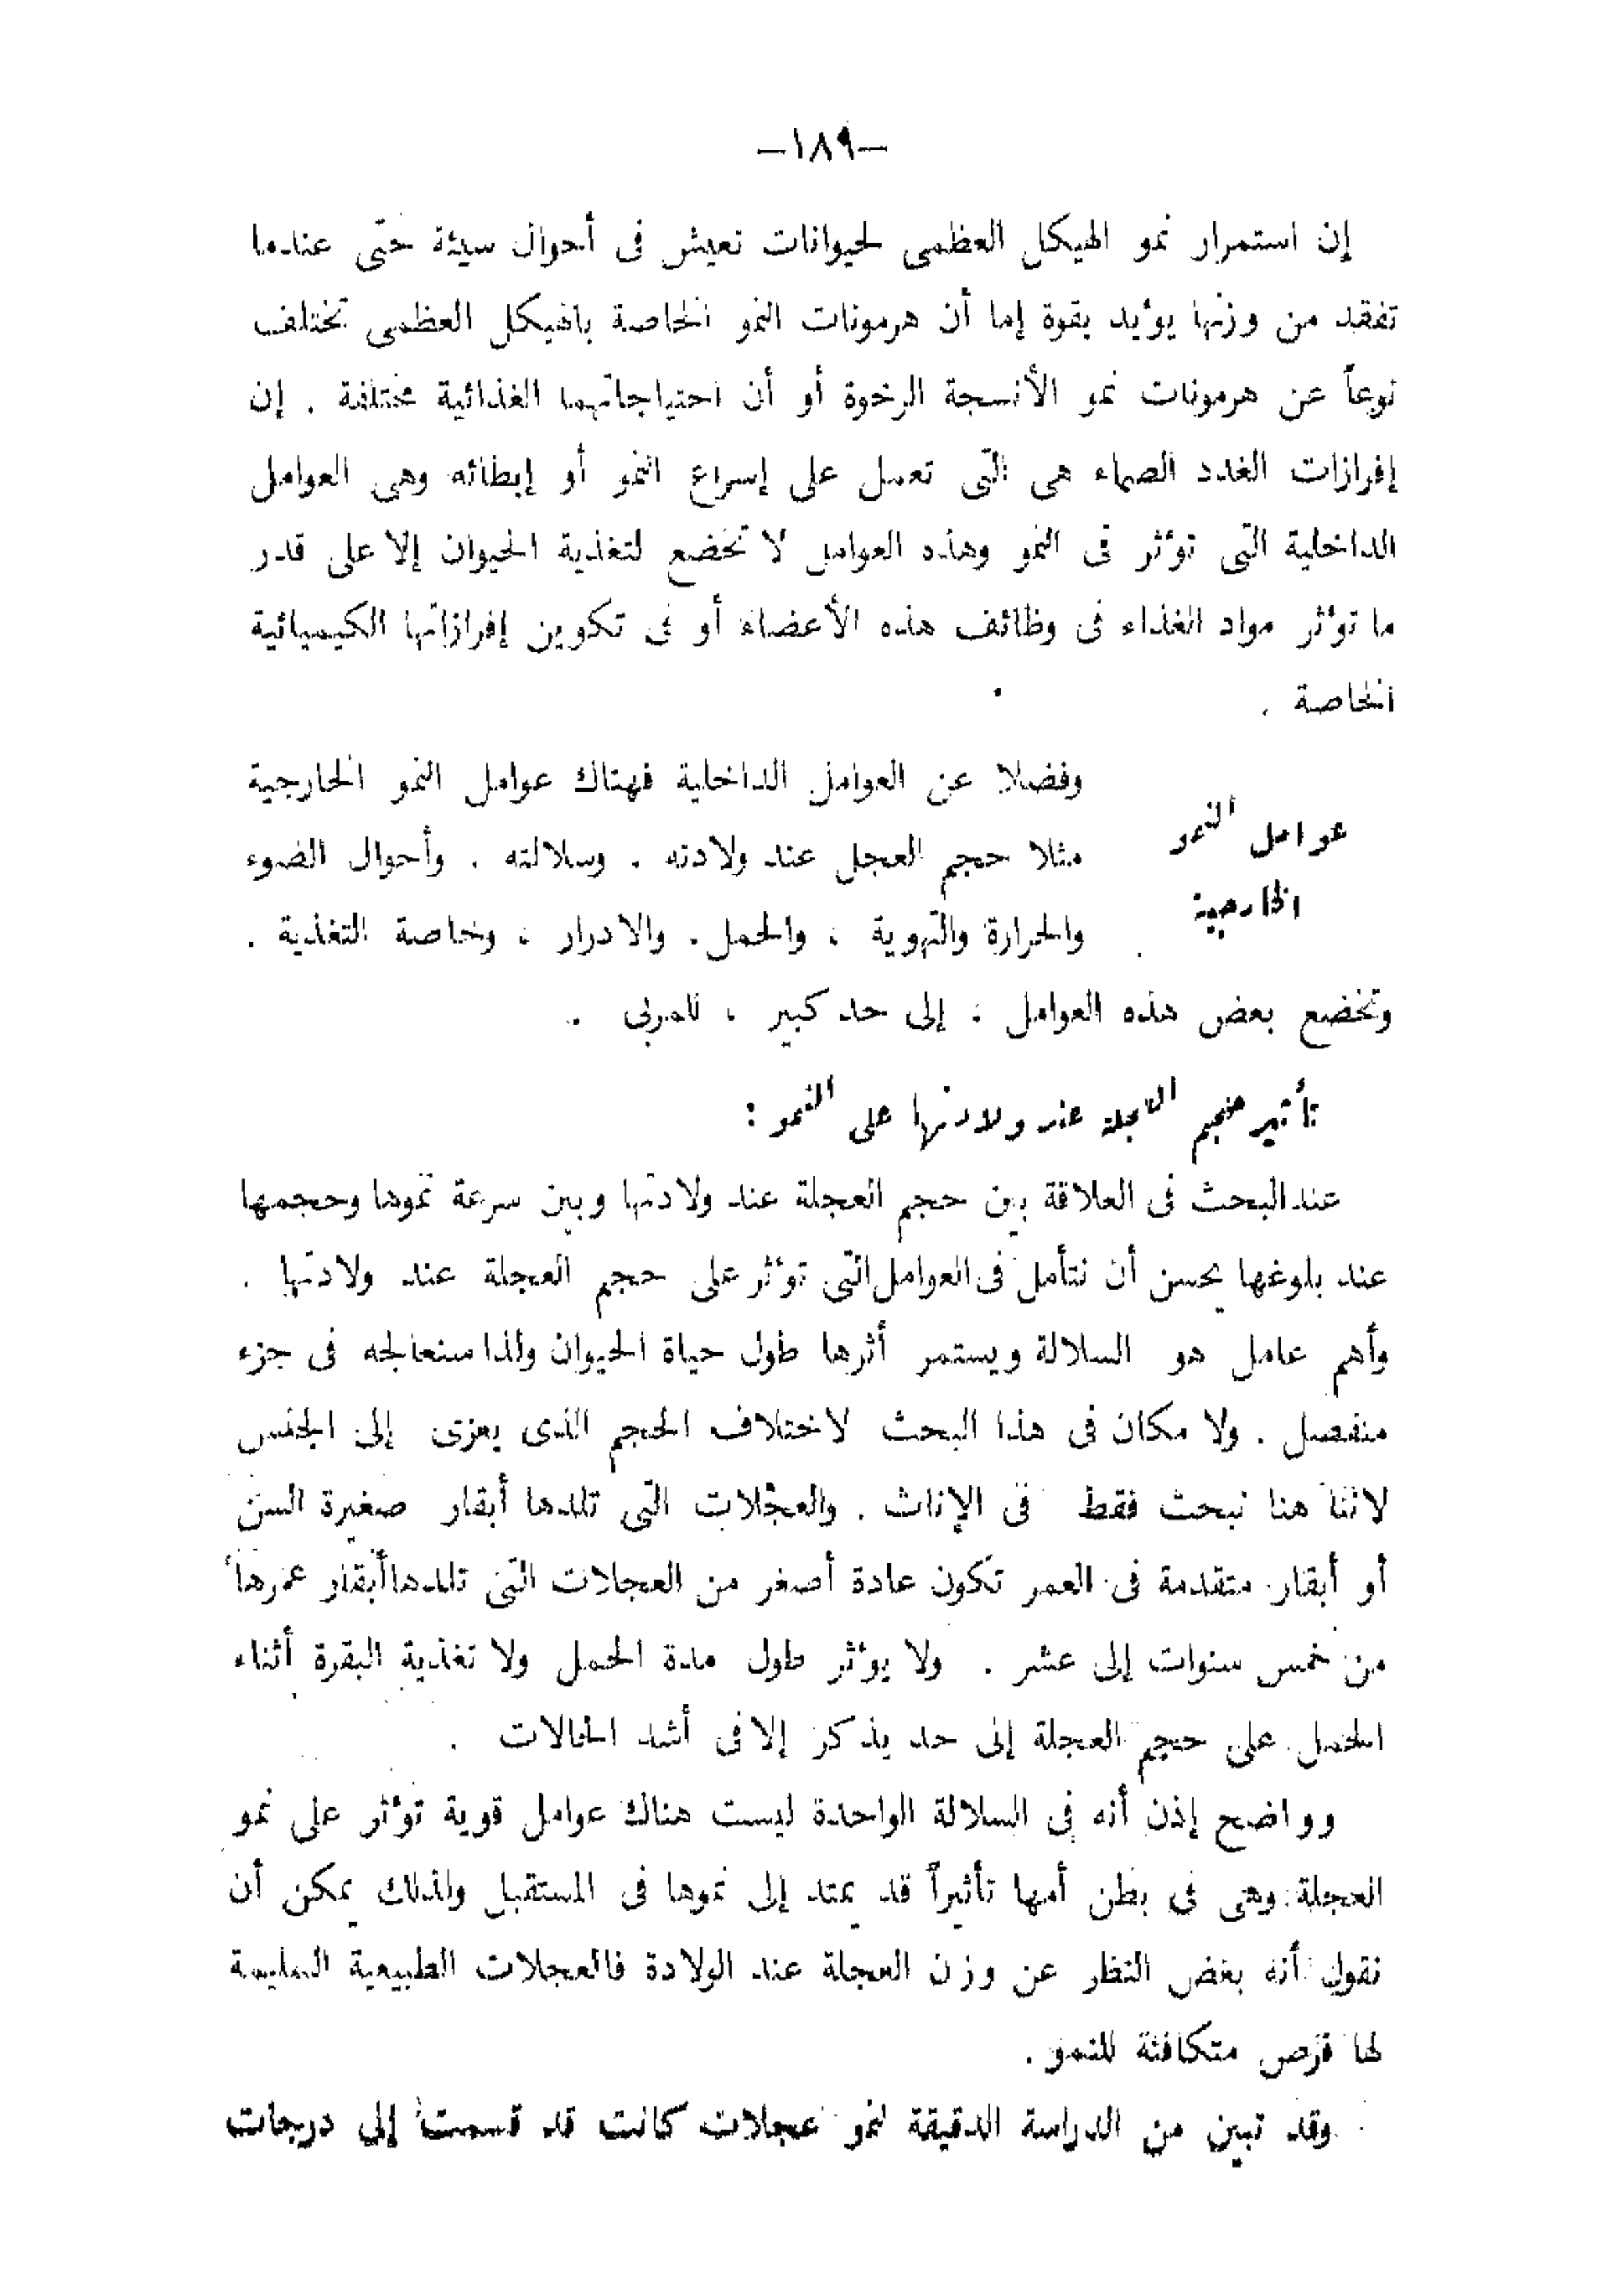 –١٨٩–
إن استمرار نمو الهيكل العظمى لحيوانات تعيش فى أحوال سيئة حتى عندما
تفقد من وزنها يؤيد بقوة إما أن هرمونات النمو الخاصة بالهيكل العظمى تختلف
نوعاً عن هرمونات نمو الأنسجة الرخوة أو أن احتياجاتهما الغذائية مختلفة . إن
إفرازات الغدد الصماء هى التى تعمل على إسراع النمو أو إبطائه وهى العوامل
الداخلية التى تؤثر فى النمو وهذه العوامل لا تخضع لتغذية الحيوان إلا على قدر
ما تؤثر مواد الغذاء فى وظائف هذه الأعضاء أو فى تكوين إفرازاتها الكيميائية
الخاصة .
عوامل النمو
الخارجية
وفضلا عن العوامل الداخلية فهناك عوامل النمو الخارجية
مثلا حجم العجل عند ولادته . وسلالته . وأحوال الضوء
والحرارة والتهوية ، والحمل . والادرار ، وخاصة التغذية .
وتخضع بعض هذه العوامل ، إلى حد كبير ، للمربى .
تأثير حجم العجلة عند ولادتها على النمو :
عند البحث فى العلاقة بين حجم العجلة عند ولادتها وبين سرعة نموها وحجمها
عند بلوغها يحسن أن نتأمل فى العوامل التى تؤثر على حجم العجلة عند ولادتها .
وأهم عامل هو السلالة ويستمر أثرها طول حياة الحيوان ولذا سنعالجه فى جزء
منفصل . ولا مكان فى هذا البحث لاختلاف الحجم الذى يعزى إلى الجنس
لاننا هنا نبحث فقط فى الإناث . والعجلات التى تلدها أبقار صغيرة السن
أو أبقار متقدمة فى العمر تكون عادة أصغر من العجلات التى تلدها أبقار عمرها
من خمس سنوات إلى عشر . ولا يؤثر طول مدة الحمل ولا تغذية البقرة أثناء
الحمل على حجم العجلة إلى حد يذكر إلا فى أشد الحالات .
وواضح إذن أنه فى السلالة الواحدة ليست هناك عوامل قوية تؤثر على نمو
العجلة وهى فى بطن أمها تأثيراً قد يمتد إلى نموها فى المستقبل ولذلك يمكن أن
نقول أنه بغض النظر عن وزن العجلة عند الولادة فالعجلات الطبيعية السليمة
لها فرص متكافئة للنمو .
وقد تبين من الدراسة الدقيقة لنمو عجلات كانت قد قسمت إلى درجات